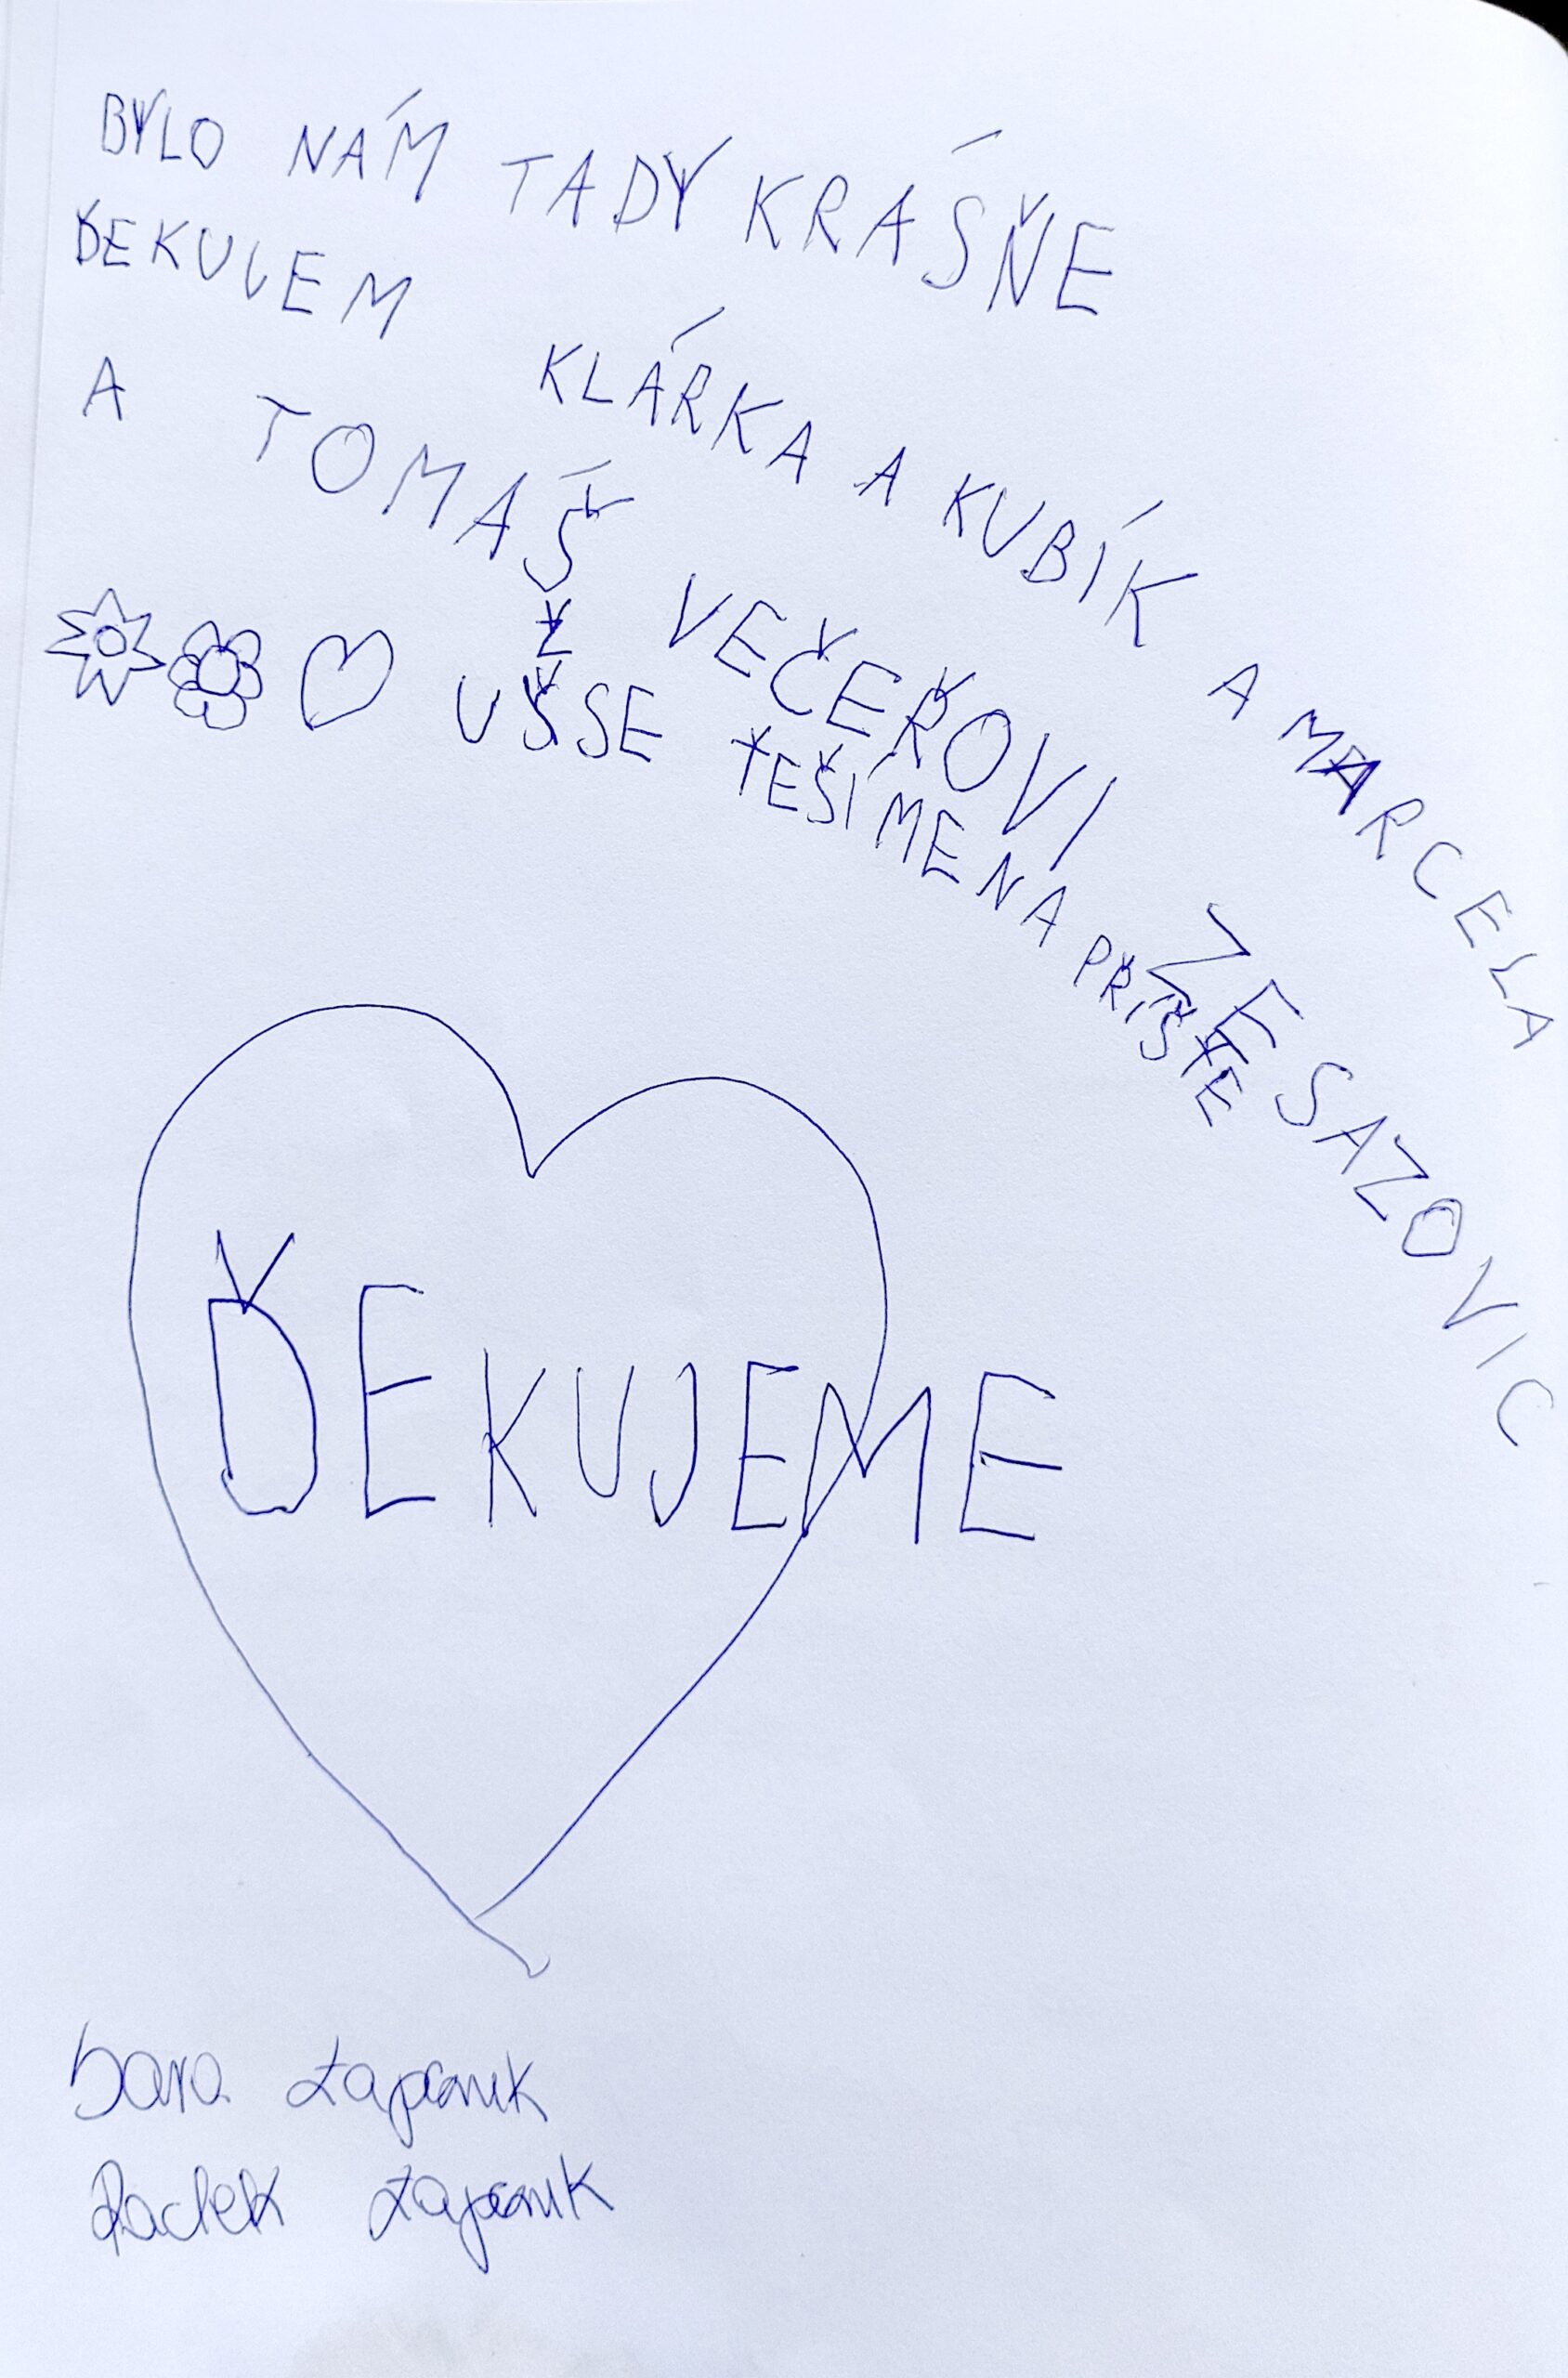 BYLO NÁM TADY KRÁSŇE
ĎEKUJEM KLÁRKA A KUBÍK A MARCELA
A TOMÁŠ VEČEŘOVI ZE SAZOVIC
UŽ SE ŤEŠÍME NA PŘÍŠŤE
ĎEKUJEME
Sara
Radek